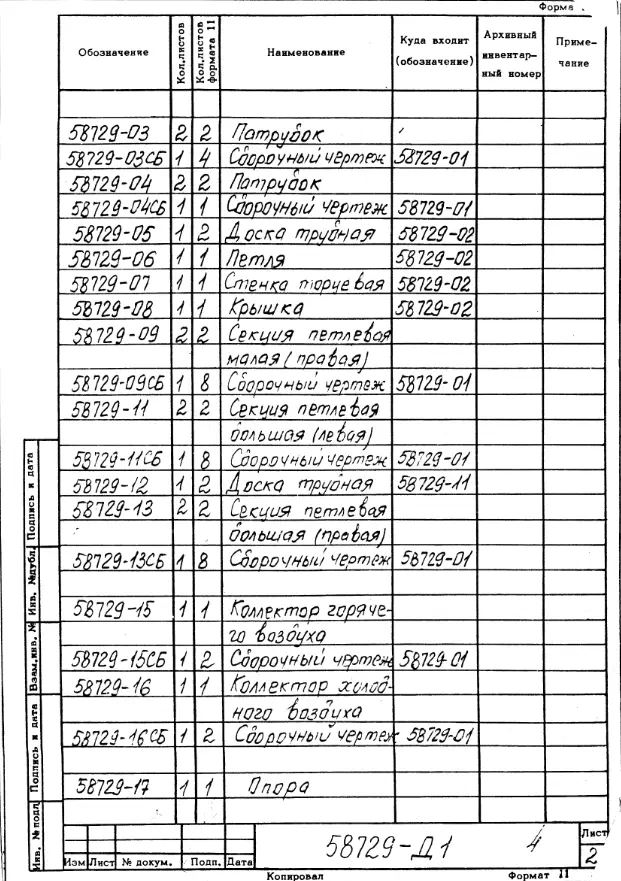 Форма
Обозначение Кол.листов Кол.листов формата 11 Наименование Куда входит (обозначение) Архивный инвентарный номер Примечание
58729-03 2 2 Патрубок
58729-03СБ 1 4 Сборочный чертеж 58729-01
58729-04 2 2 Патрубок
58729-04СБ 1 1 Сборочный чертеж 58729-01
58729-05 1 2 Доска трубная 58729-02
58729-06 1 1 Петля 58729-02
58729-07 1 1 Стенка торцевая 58729-02
58729-08 1 1 Крышка 58729-02
58729-09 2 2 Секция петлевая
малая (правая)
58729-09СБ 1 8 Сборочный чертеж 58729-01
58729-11 2 2 Секция петлевая
большая (левая)
58729-11СБ 1 8 Сборочный чертеж 58729-01
58729-12 1 2 Доска трубная 58729-11
58729-13 2 2 Секция петлевая
большая (правая)
58729-13СБ 1 8 Сборочный чертеж 58729-01
58729-15 1 1 Коллектор горяче-
го воздуха
58729-15СБ 1 2 Сборочный чертеж 58729-01
58729-16 1 1 Коллектор холод-
ного воздуха
58729-16СБ 1 2 Сборочный чертеж 58729-01
58729-17 1 1 Опора
Подпись и дата
Инв. №дубл.
Взам.инв. №
Подпись и дата
Инв. № подл
58729-Д1 4 Лист
2
Изм Лист № докум. Подп. Дата
Копировал Формат 11